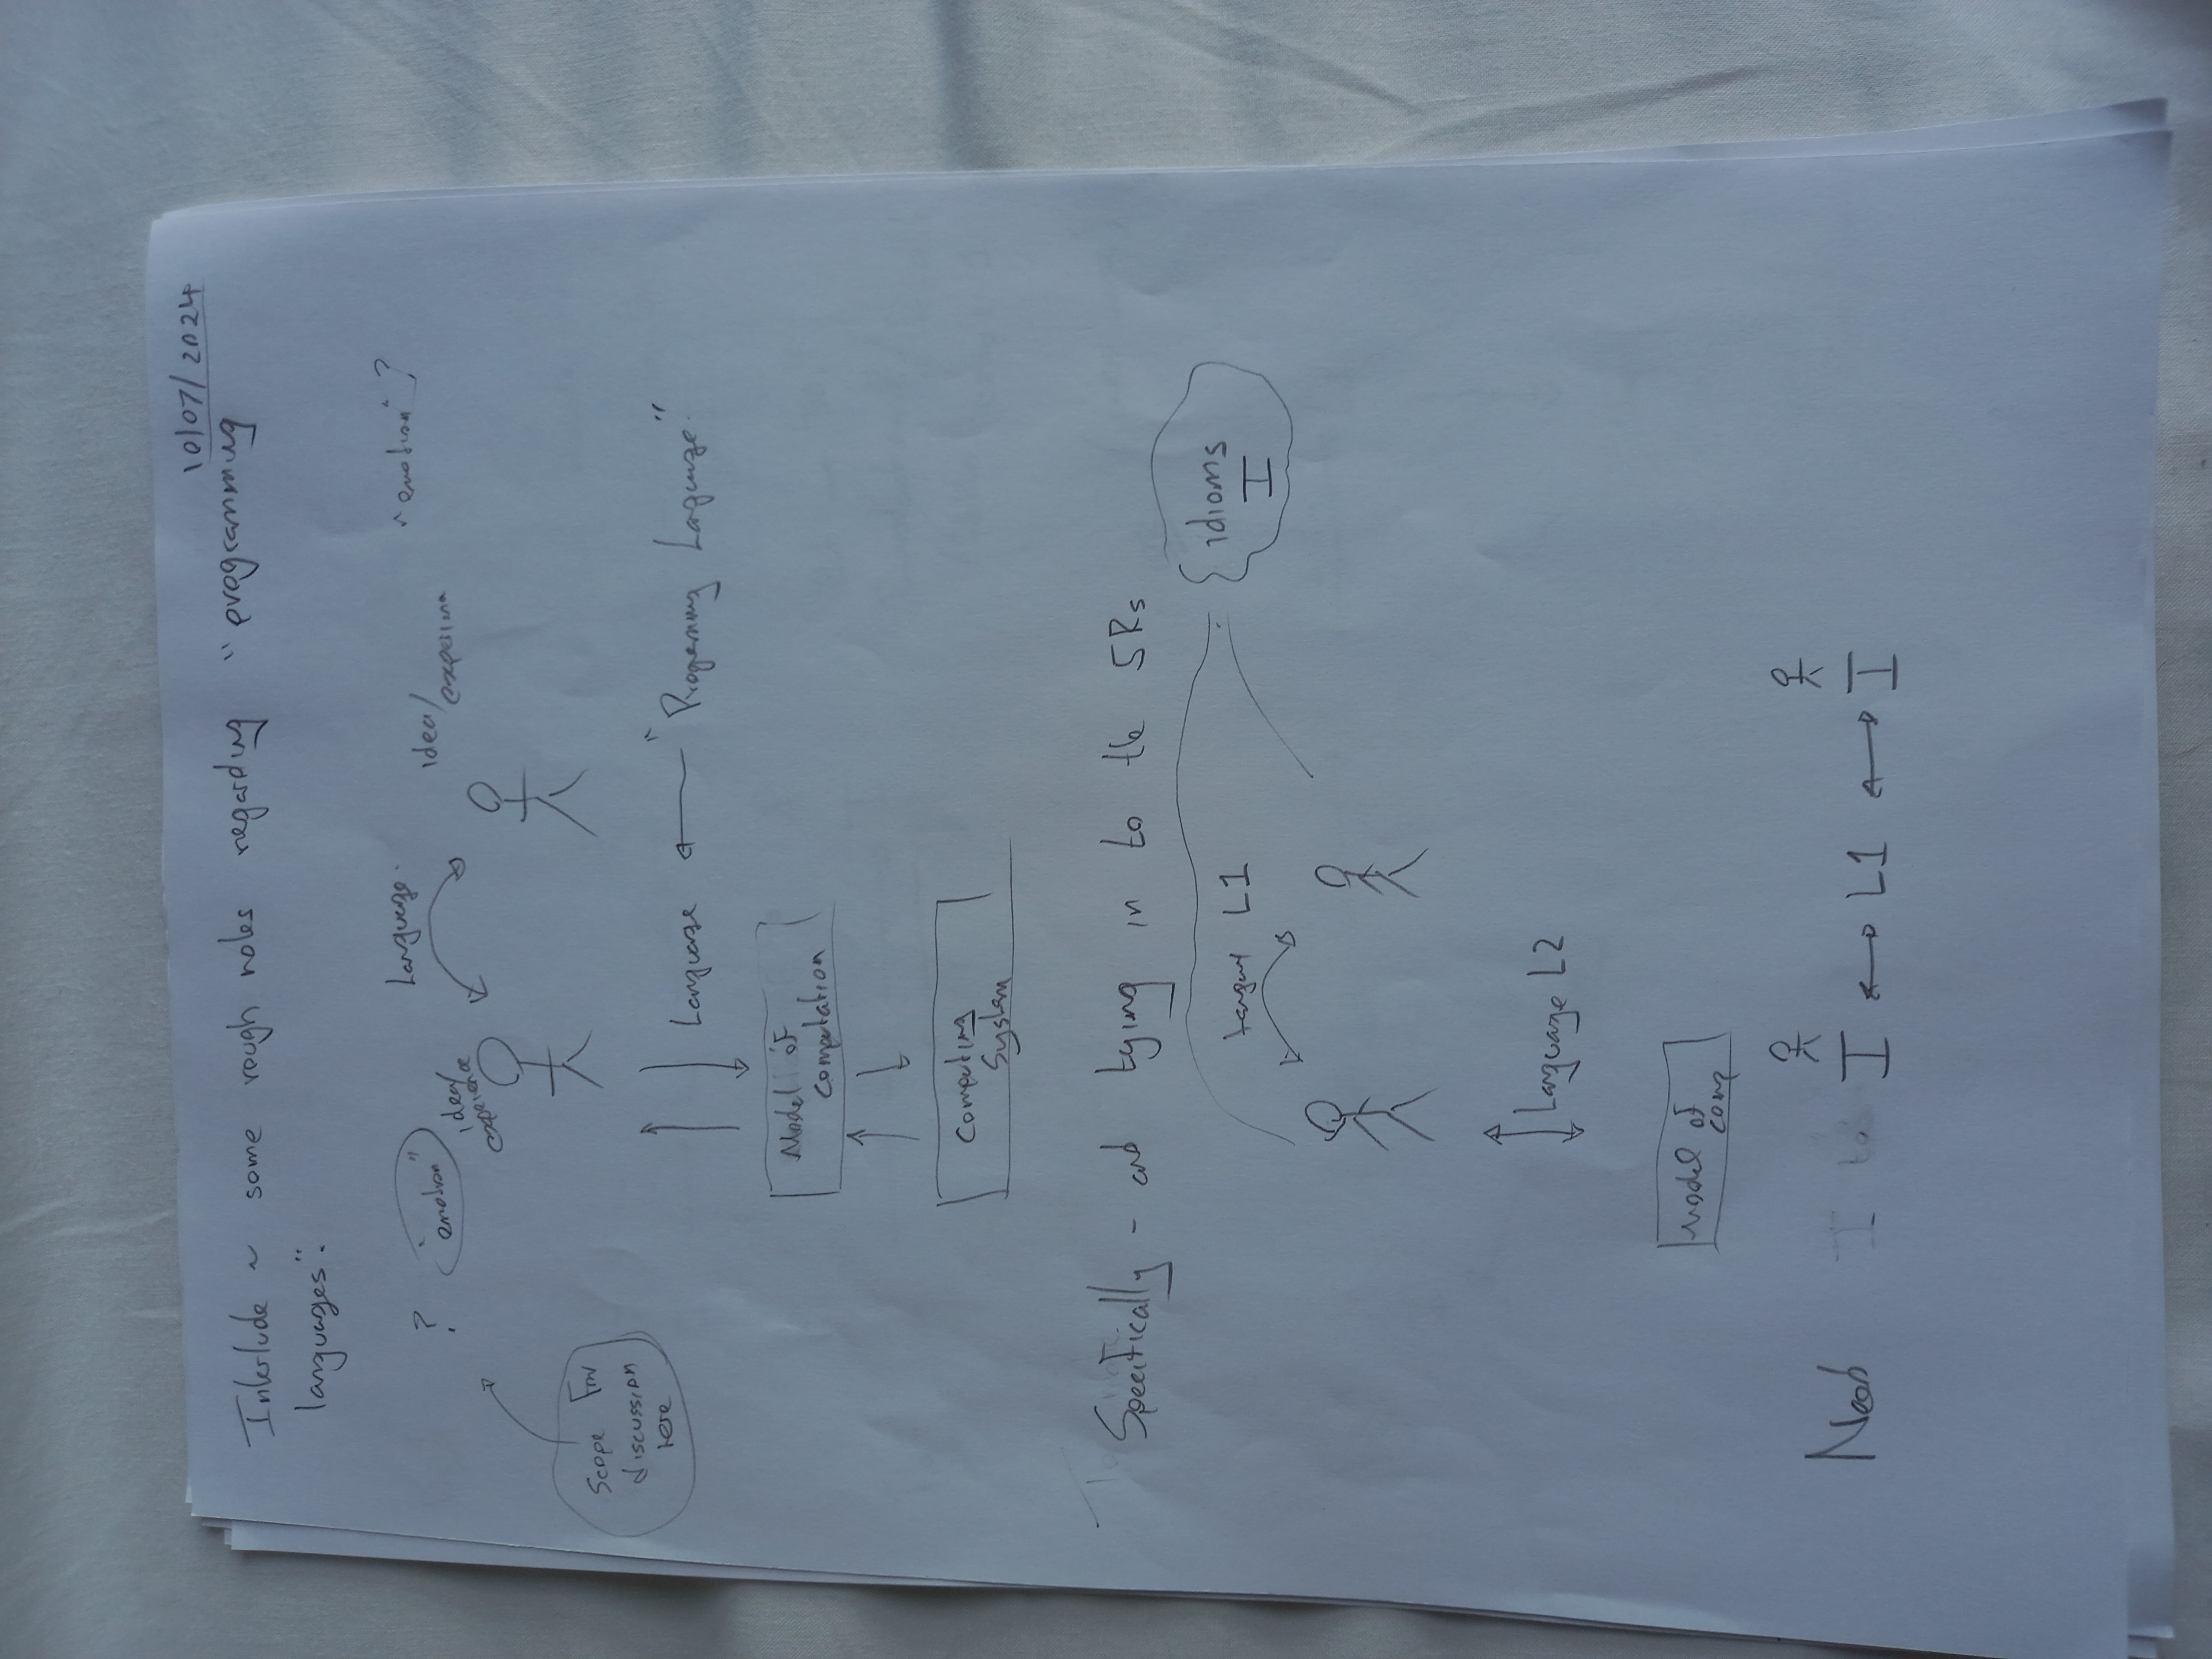 10/07/2024
Interlude ~ some rough notes regarding "programming
languages":
Language.
"emotion" ?
?
"emotion"
idea/
experience
idea/
Scope For
discussion
here
Language ← "Programing Language"
Model of
computation
Computing
System
Specifically - and tying in to the 5Rs
idioms
I
L1
Language L2
Model of
comp
Need
I ↔ L1 ↔ I